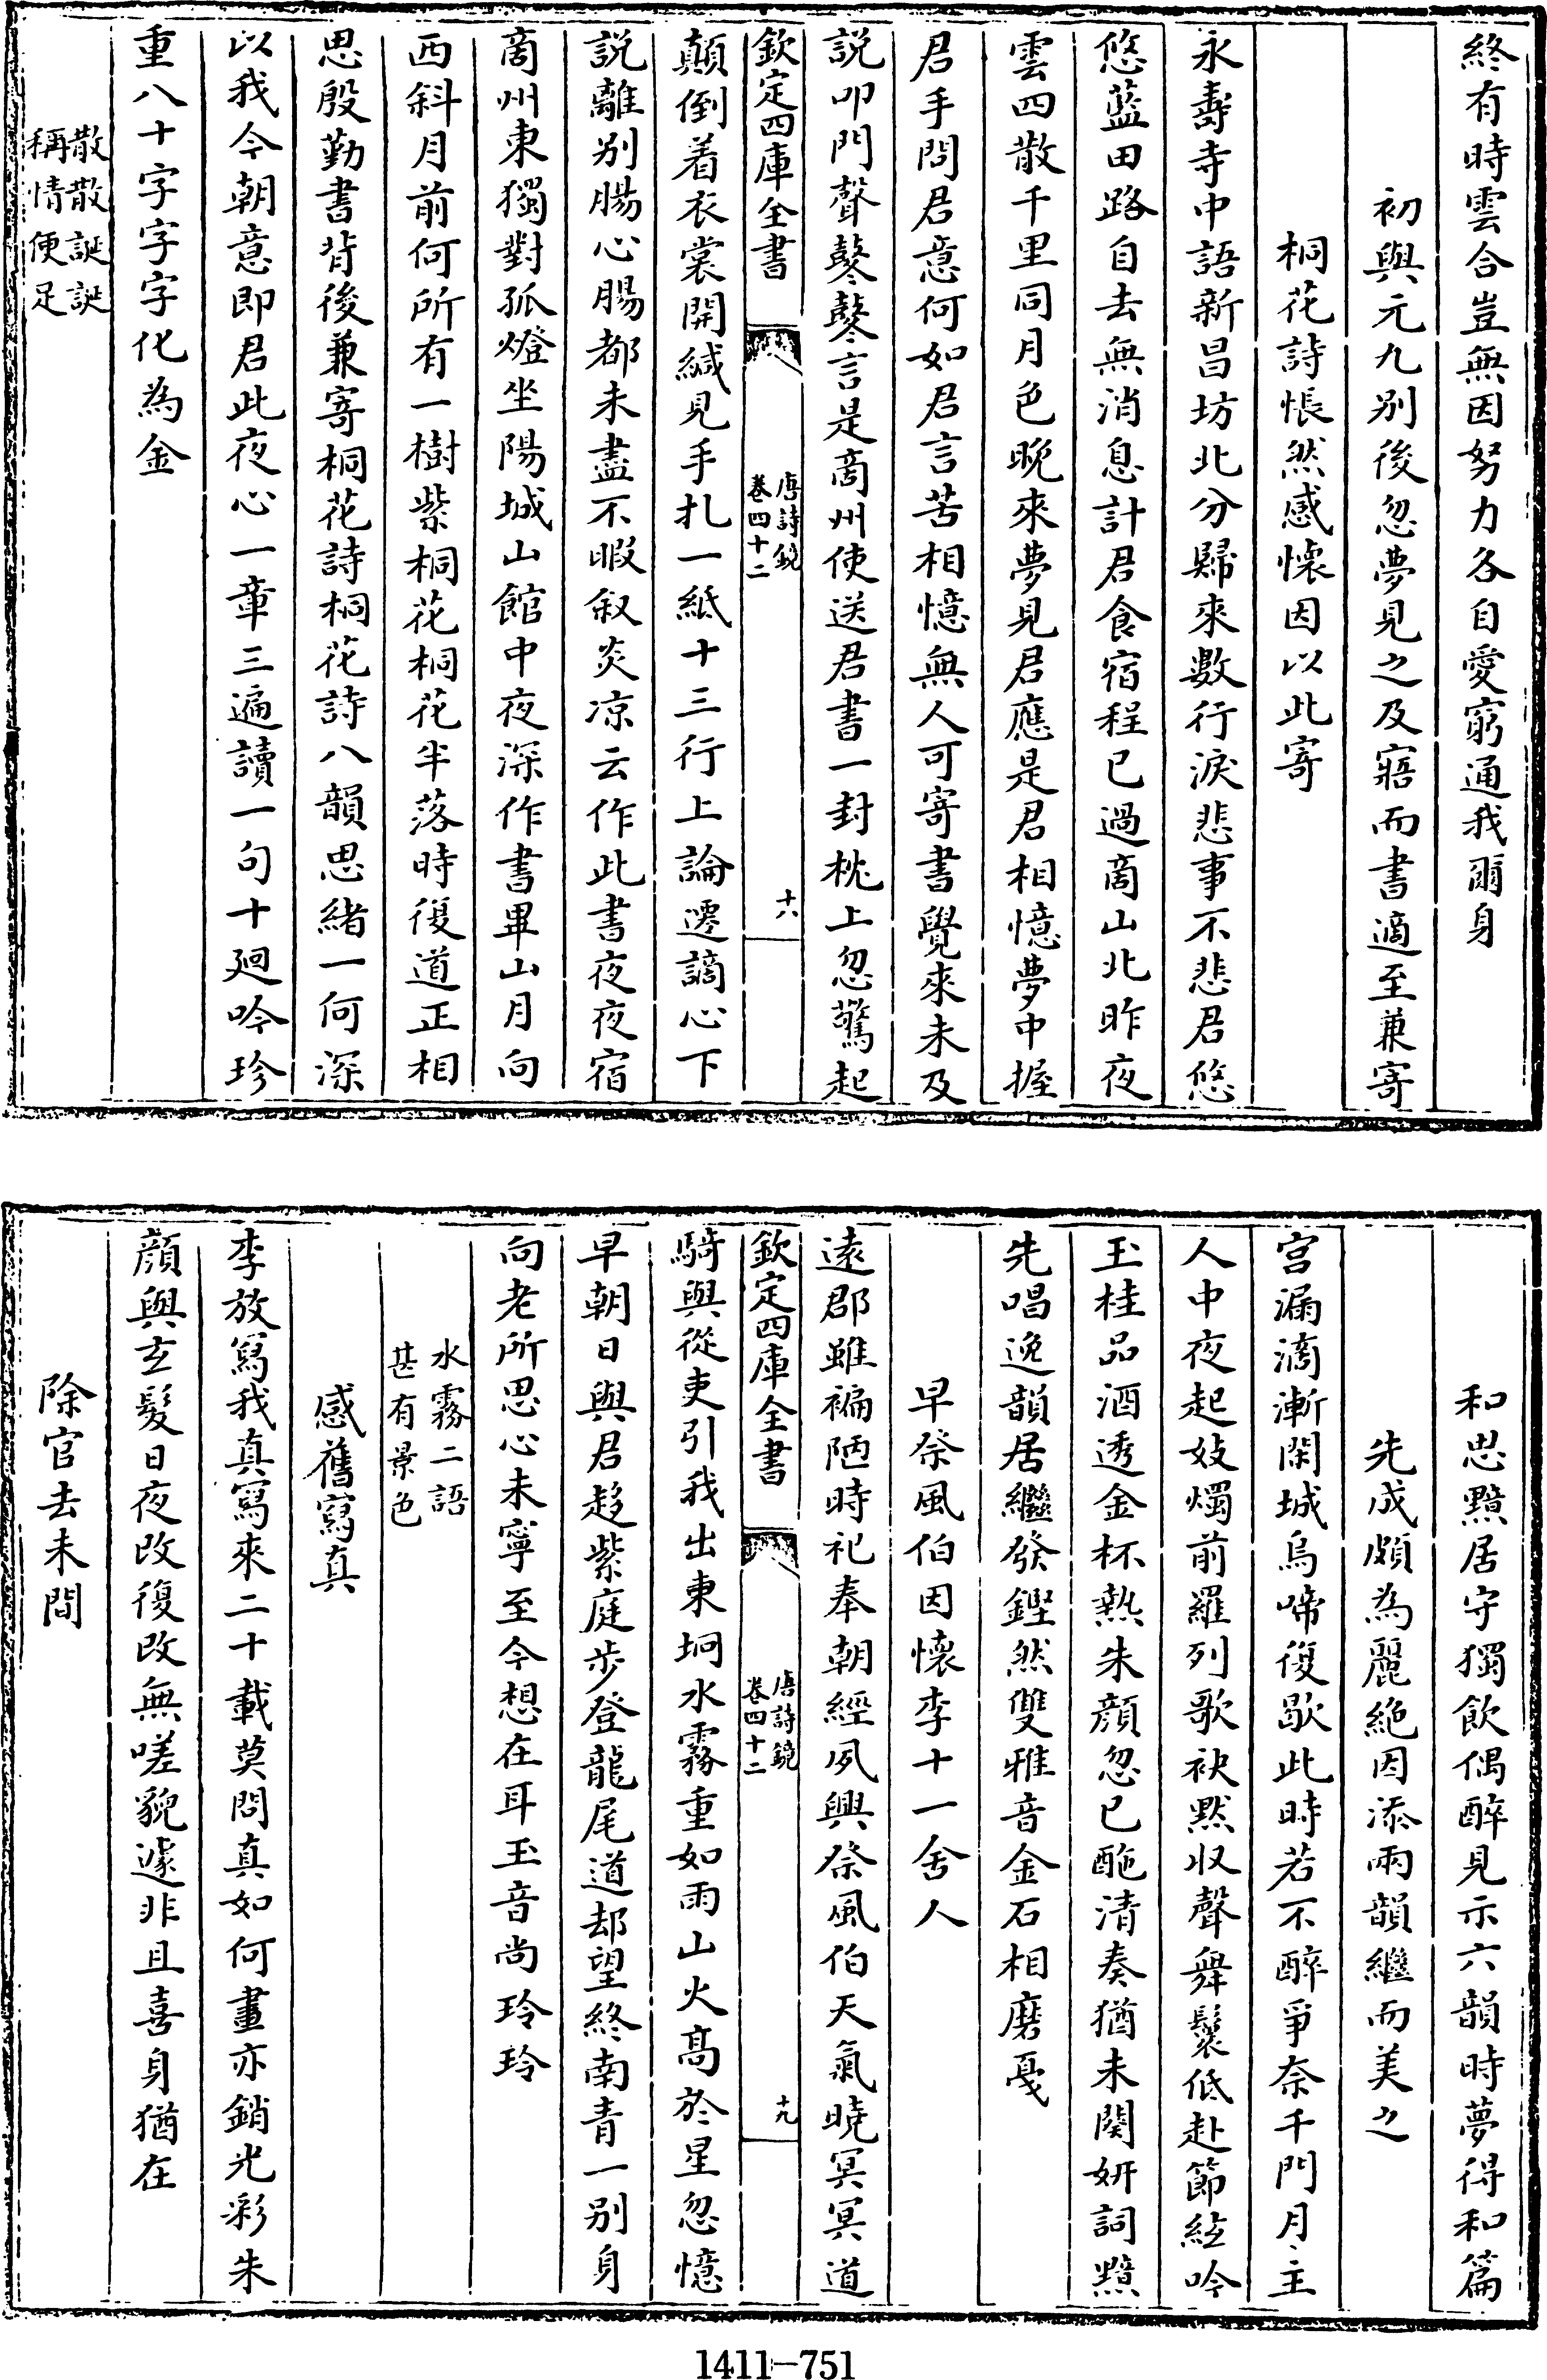 終有時雲合豈無因努力各自愛窮通我爾身
初與元九别後忽夢見之及寤而書適至兼寄
桐花詩悵然感懷因以此寄
永壽寺中語新昌坊北分歸來數行淚悲事不悲君悠
悠藍田路自去無消息計君食宿程已過商山北昨夜
雲四散千里同月色晩來夢見君應是君相憶夢中握
君手問君意何如君言苦相憶無人可寄書覺來未及
説叩門聲鼕鼕言是商州使送君書一封枕上忽驚起
欽定四庫全書
唐詩鏡
卷四十二
十八
顛倒着衣裳開緘見手扎一紙十三行上論遷謫心下
説離别腸心腸都未盡不暇叙炎凉云作此書夜夜宿
商州東獨對孤燈坐陽城山館中夜深作書畢山月向
西斜月前何所有一樹紫桐花桐花半落時復道正相
思殷勤書背後兼寄桐花詩桐花詩八韻思緒一何深
以我今朝意即君此夜心一章三遍讀一句十廻吟珍
重八十字字字化為金
散散誕誕
稱情便足
和思黯居守獨飲偶醉見示六韻時夢得和篇
先成頗為麗絶因添兩韻繼而美之
宫漏滴漸闌城烏啼復歇此時若不醉爭奈千門月主
人中夜起妓燭前羅列歌袂黙收聲舞鬟低赴節絃吟
玉桂品酒透金杯熱朱顔忽已酡清奏猶未闋妍詞黯
先唱逸韻居繼發鏗然雙雅音金石相磨戞
早祭風伯因懷李十一舍人
遠郡雖褊陋時祀奉朝經夙興祭風伯天氣曉冥冥道
欽定四庫全書
唐詩鏡
卷四十二
十九
騎與從吏引我出東坰水霧重如雨山火髙於星忽憶
早朝日與君趍紫庭步登龍尾道却望終南青一别身
向老所思心未寧至今想在耳玉音尚玲玲
水霧二語
甚有景色
感舊寫真
李放寫我真寫來二十載莫問真如何畫亦銷光彩朱
顔與玄髮日夜改復改無嗟貌遽非且喜身猶在
除官去未間
1411-751